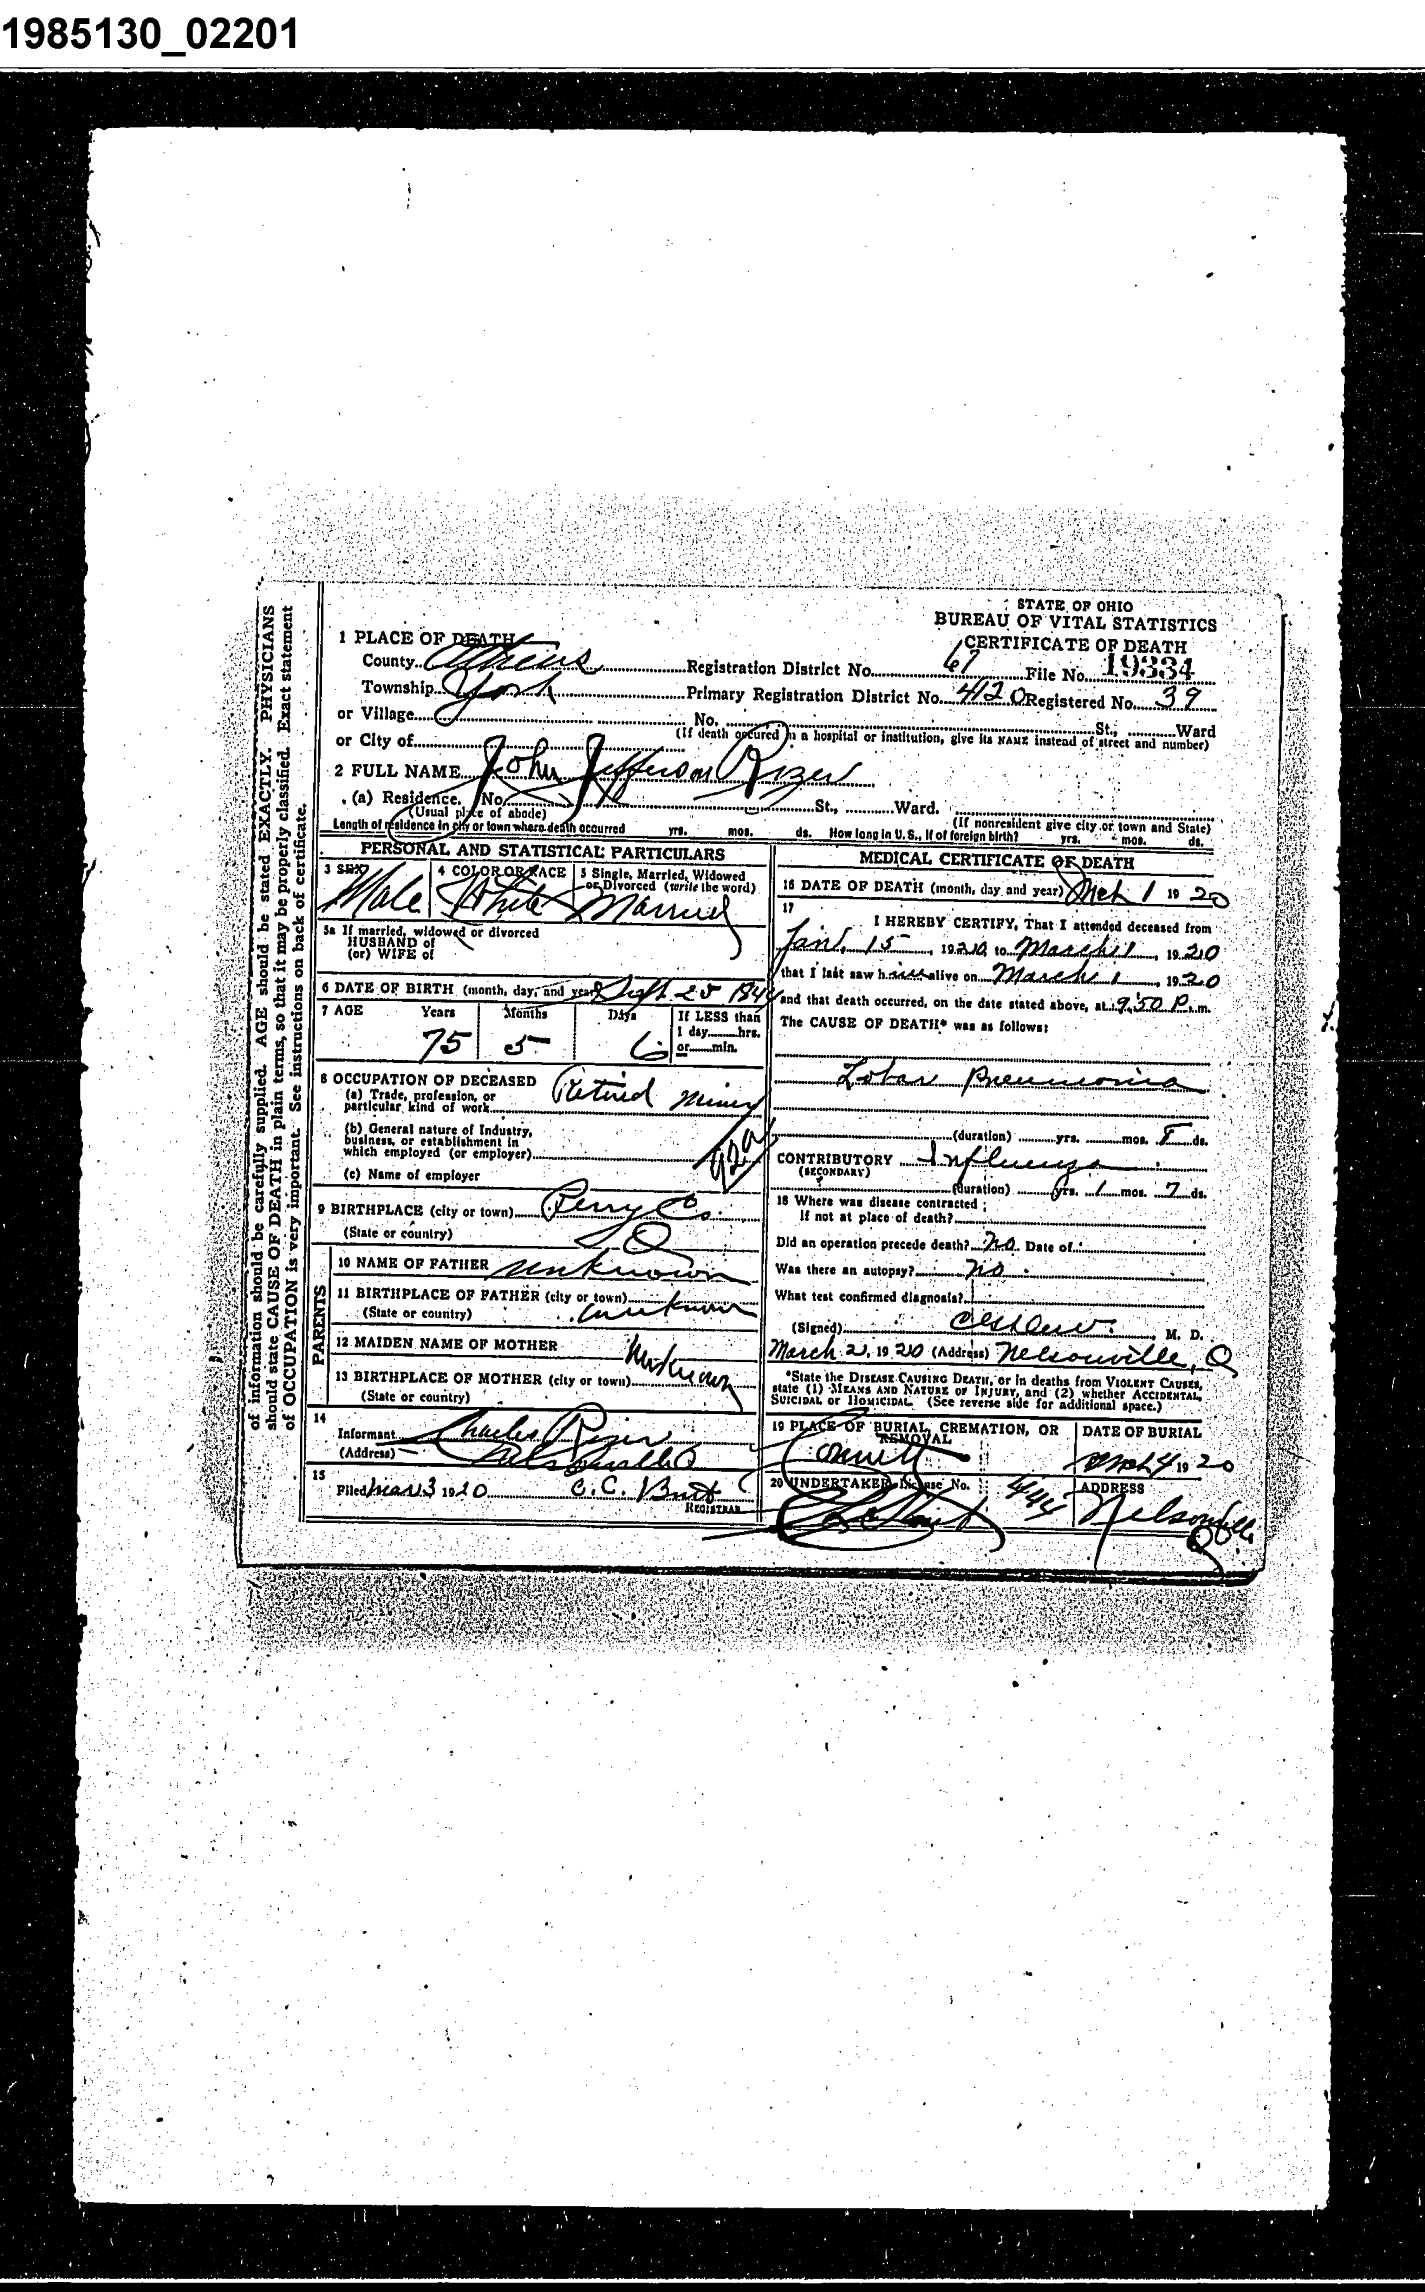 1985130_02201
of information should be carefully supplied. AGE should be stated EXACTLY. PHYSICIANS
should state CAUSE OF DEATH in plain terms, so that it may be properly classified. Exact statement
of OCCUPATION is very important. See instructions on back of certificate.
STATE OF OHIO
BUREAU OF VITAL STATISTICS
CERTIFICATE OF DEATH
1 PLACE OF DEATH
County Athens Registration District No. 67 File No. 19334
Township York Primary Registration District No. 4120 Registered No. 39
or Village No. St., Ward
(If death occured in a hospital or institution, give its NAME instead of street and number)
or City of
2 FULL NAME John Jefferson Rizer
(a) Residence. No. St., Ward.
(Usual place of abode) (If nonresident give city or town and State)
Length of residence in city or town where death occurred yrs. mos. ds. How long in U. S., if of foreign birth? yrs. mos. ds.
PERSONAL AND STATISTICAL PARTICULARS
3 SEX Male
4 COLOR OR RACE White
5 Single, Married, Widowed
or Divorced (write the word)
Married
5a If married, widowed or divorced
HUSBAND of
(or) WIFE of
6 DATE OF BIRTH (month, day, and year) Sept 25 1844
7 AGE Years Months Days If LESS than
1 day hrs.
or min.
75 5 6
8 OCCUPATION OF DECEASED
(a) Trade, profession, or
particular kind of work Retired Miner
(b) General nature of Industry,
business, or establishment in
which employed (or employer)
(c) Name of employer
92a
9 BIRTHPLACE (city or town) Perry Co.
(State or country) O
PARENTS
10 NAME OF FATHER unknown
11 BIRTHPLACE OF FATHER (city or town)
(State or country) unknown
12 MAIDEN NAME OF MOTHER
Unknown
13 BIRTHPLACE OF MOTHER (city or town)
(State or country)
14
Informant Charles Rizer
(Address) Nelsonville O
15
Filed Mar 3 1920 C. C. Butt
REGISTRAR
MEDICAL CERTIFICATE OF DEATH
16 DATE OF DEATH (month, day and year) Mch 1 1920
17
I HEREBY CERTIFY, That I attended deceased from
Jan. 15, 1920, to March 1, 1920
that I last saw him alive on March 1, 1920
and that death occurred, on the date stated above, at 9.50 P. m.
The CAUSE OF DEATH* was as follows:
Lobar Pneumonia
(duration) yrs. mos. 8 ds.
CONTRIBUTORY Influenza
(SECONDARY)
(duration) yrs. 1 mos. 7 ds.
18 Where was disease contracted
if not at place of death?
Did an operation precede death? No Date of
Was there an autopsy? no
What test confirmed diagnosis?
(Signed) M. D.
March 2, 1920 (Address) Nelsonville, O
*State the DISEASE CAUSING DEATH, or in deaths from VIOLENT CAUSES,
state (1) MEANS AND NATURE OF INJURY, and (2) whether ACCIDENTAL,
SUICIDAL or HOMICIDAL. (See reverse side for additional space.)
19 PLACE OF BURIAL, CREMATION, OR
REMOVAL
Connett
DATE OF BURIAL
Mch 4 1920
20 UNDERTAKER License No. 444
ADDRESS
Nelsonville
O